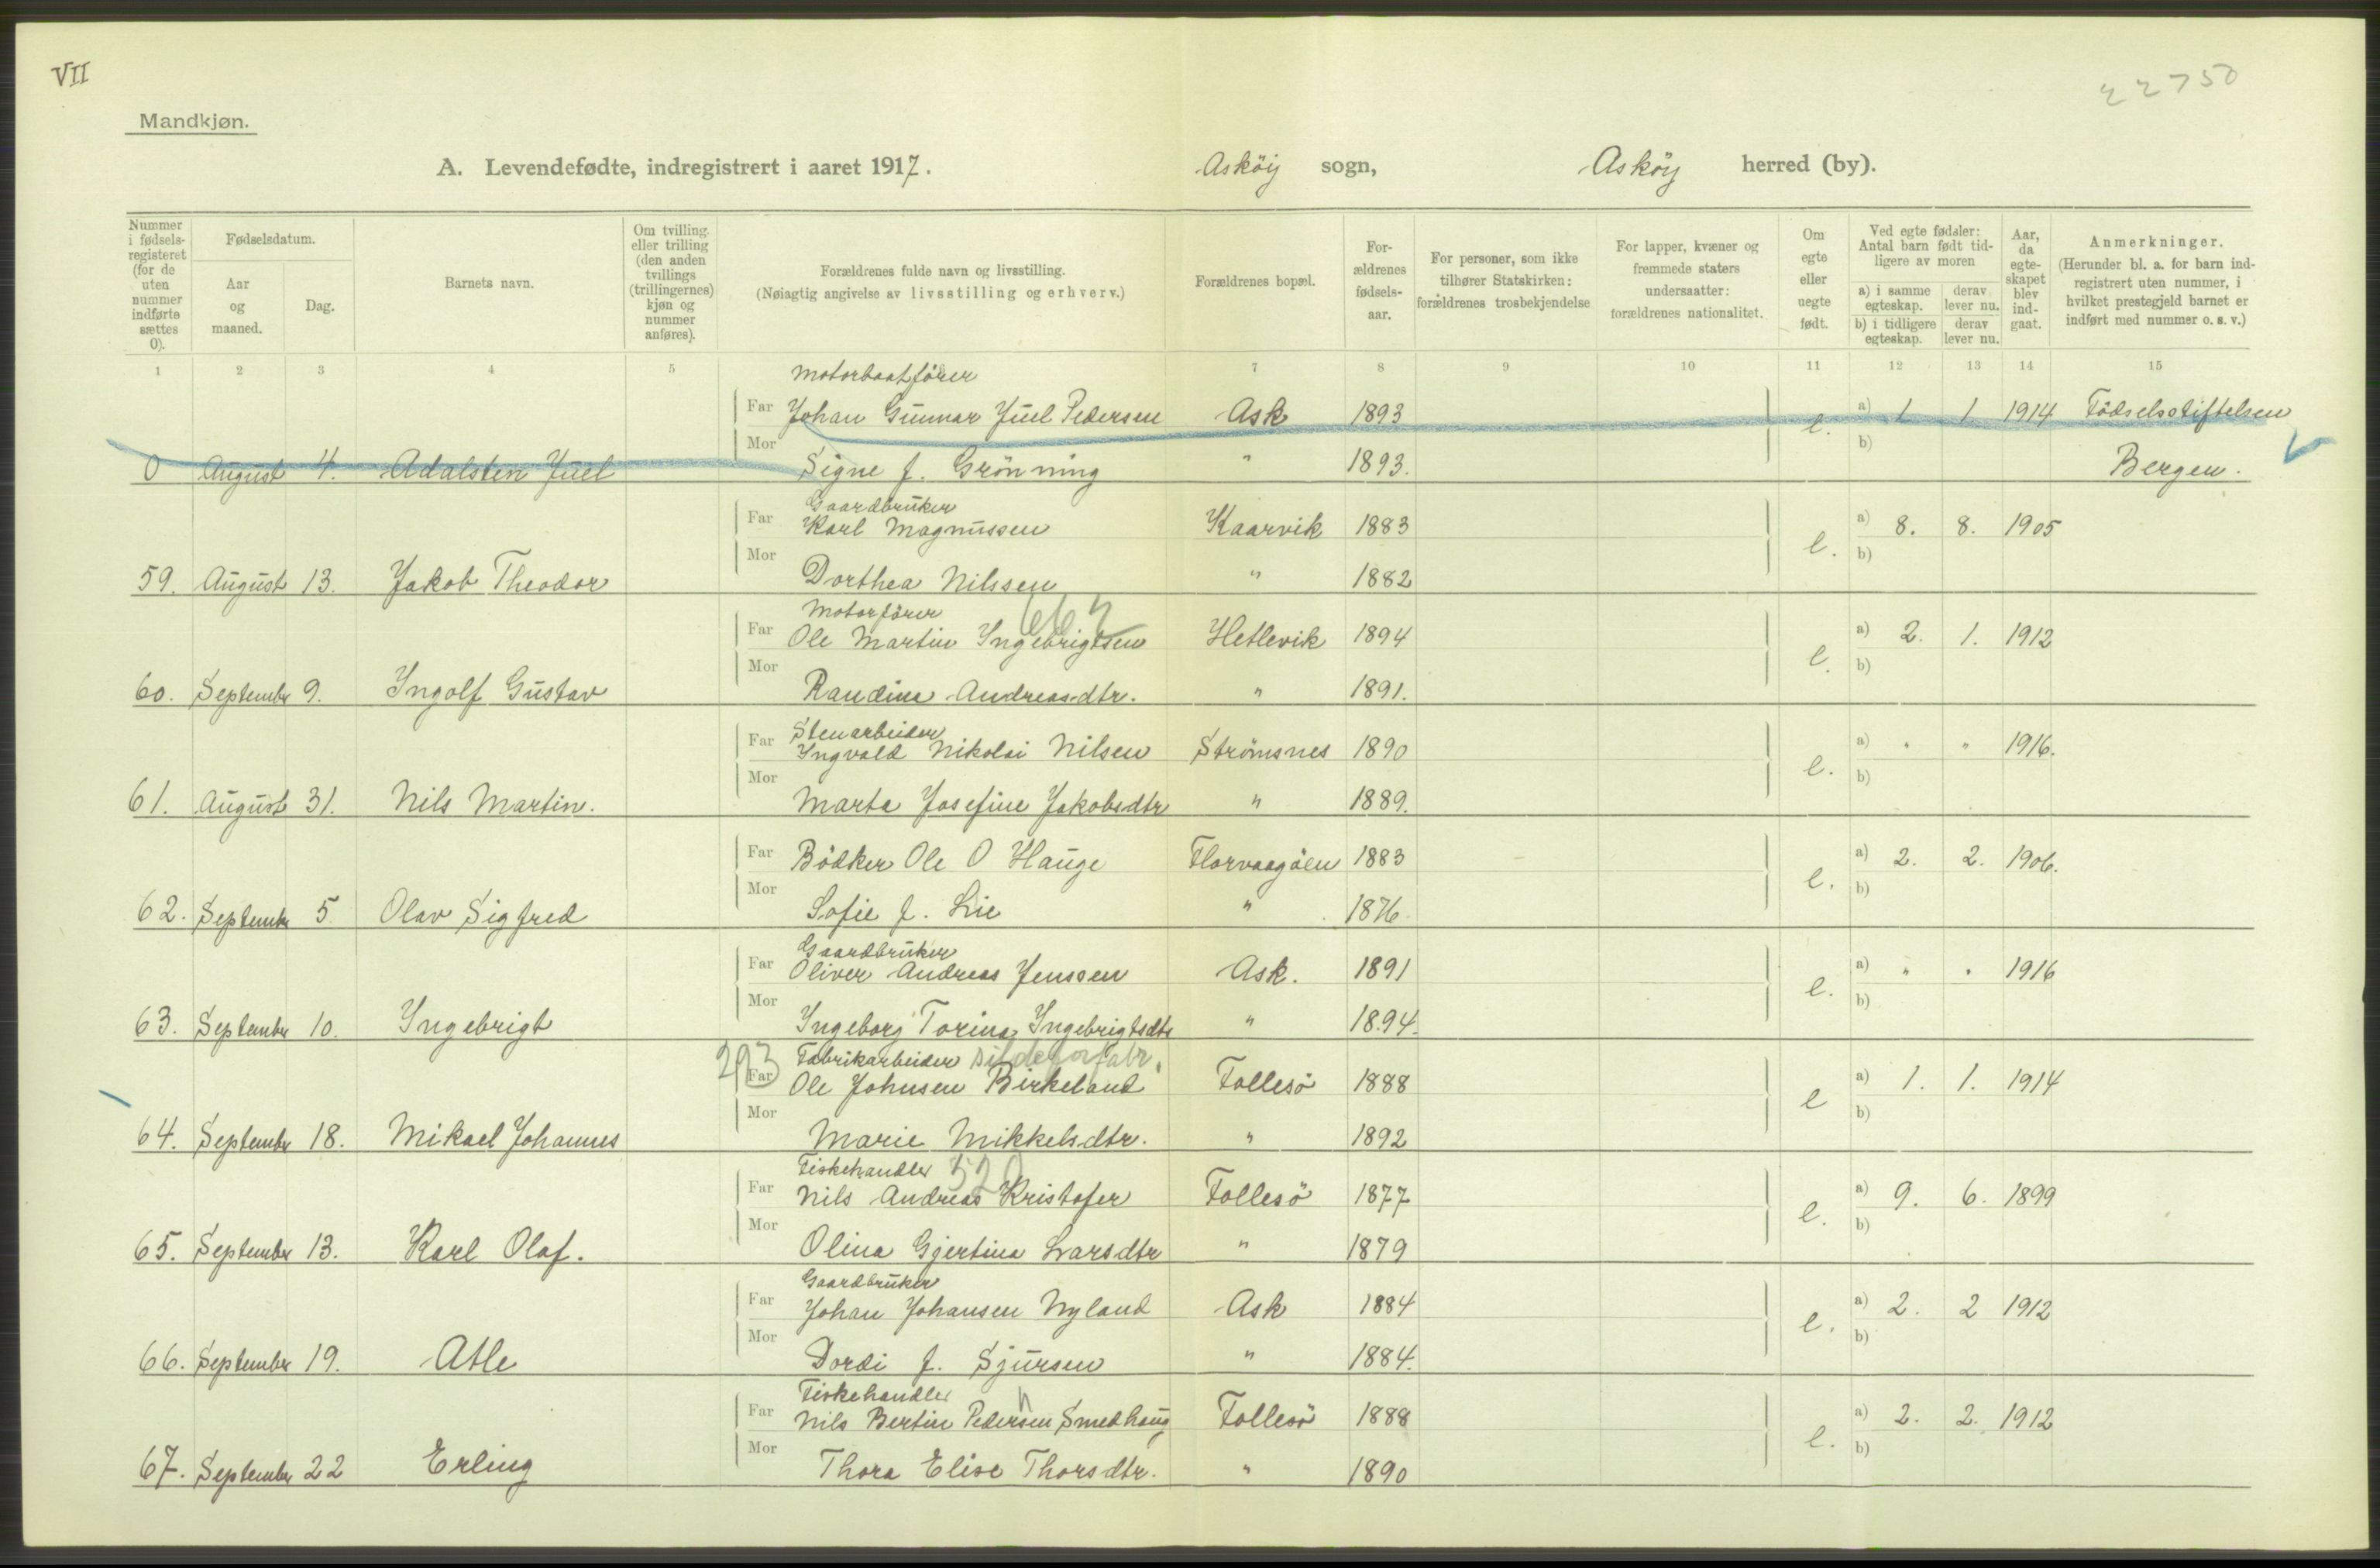 VII
22750
Mandkjøn.
A. Levendefødte, indregistrert i aaret 1917. Asköy sogn, Asköy herred (by).
Nummer i fødsels-registeret (for de uten nummer indførte sættes 0).
Fødselsdatum.
Aar og maaned.
Dag.
Barnets navn.
Om tvilling eller trilling (den anden tvillings (trillingernes) kjøn og nummer anføres).
Forældrenes fulde navn og livsstilling.
(Nøiagtig angivelse av livsstilling og erhverv.)
Forældrenes bopæl.
For-ældrenes fødsels-aar.
For personer, som ikke tilhører Statskirken: forældrenes trosbekjendelse
For lapper, kvæner og fremmede staters undersaatter: forældrenes nationalitet.
Om egte eller uegte født.
Ved egte fødsler: Antal barn født tid-ligere av moren
a) i samme egteskap. derav lever nu.
b) i tidligere egteskap. derav lever nu.
Aar, da egte-skapet blev ind-gaat.
Anmerkninger.
(Herunder bl. a. for barn ind-registrert uten nummer, i hvilket prestegjeld barnet er indført med nummer o. s. v.)
1 2 3 4 5 7 8 9 10 11 12 13 14 15
Motorbaatfører
Far Johan Gunnar Juel Pedersen Ask 1893 e. a) 1 1 1914 Födselsstiftelsen
0 August 4. Adalsten Juel Mor Signe f. Grönning " 1893. b) Bergen.
Gaardbruker
Far Karl Magnussen Kaarvik 1883 e. a) 8. 8. 1905
59. August 13. Jakob Theodor Mor Dorthea Nilssen " 1882 b)
Motorfører
Far Ole Martin Ingebrigtsen Hetlevik 1894 e. a) 2. 1. 1912
60. September 9. Ingolf Gustav Mor Randine Andreasdtr. " 1891. b)
Stenarbeider
Far Ingvald Nikolai Nilsen Strömsnes 1890 e. a) " " 1916.
61. August 31. Nils Martin. Mor Marta Josefine Jakobsdtr " 1889. b)
Far Bödker Ole O Hauge Florvaagöen 1883 e. a) 2. 2. 1906.
62. September 5 Olav Sigfred Mor Sofie f. Lie " 1876 b)
Gaardbruker
Far Oliver Andreas Jenssen Ask. 1891 e. a) " " 1916
63. September 10. Ingebrigt Mor Ingeborg Torina Ingebrigtsdtr " 1894. b)
293 Fabrikarbeider
Far Ole Johnsen Birkeland Follesö 1888 e a) 1. 1. 1914
64. September 18. Mikael Johannes Mor Marie Mikkelsdtr. " 1892 b)
Fiskehandler
Far Nils Andreas Kristofer Follesö 1877 e. a) 9. 6. 1899
65. September 13. Karl Olaf. Mor Olina Gjertina Larsdtr " 1879 b)
Gaardbruker
Far Johan Johansen Nyland Ask 1884 e. a) 2. 2 1912
66. September 19. Atle Mor Dordi f. Sjursen " 1884. b)
Fiskehandler
Far Nils Bertin Pedersen Smedhaug Follesö 1888 e. a) 2. 2. 1912
67. September 22 Erling Mor Thora Elise Thorsdtr. " 1890 b)